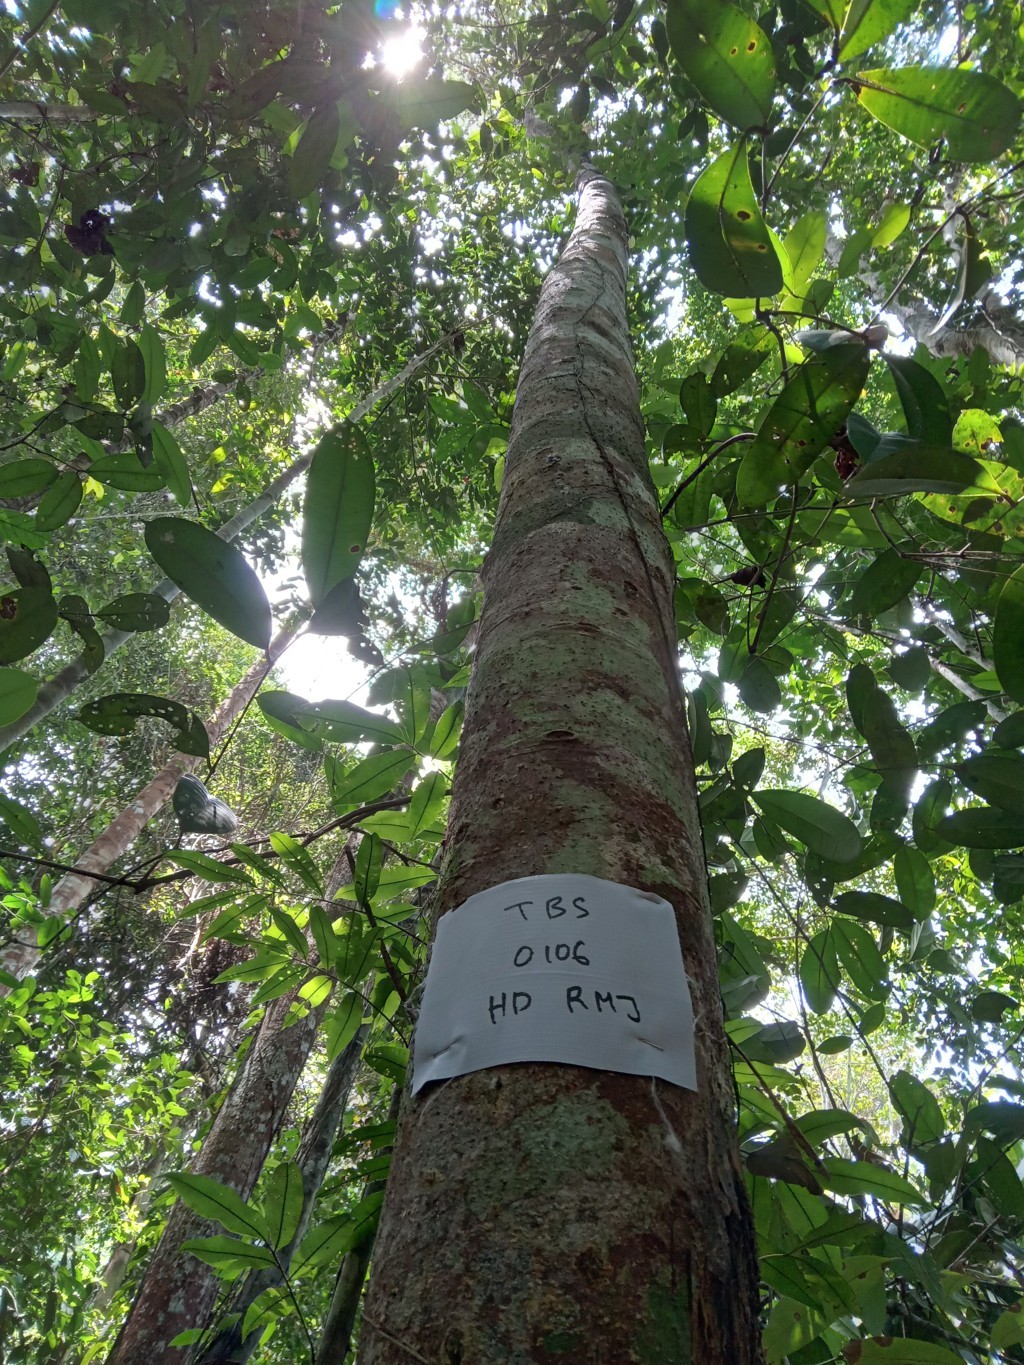 TBS
0106
HD RMJ